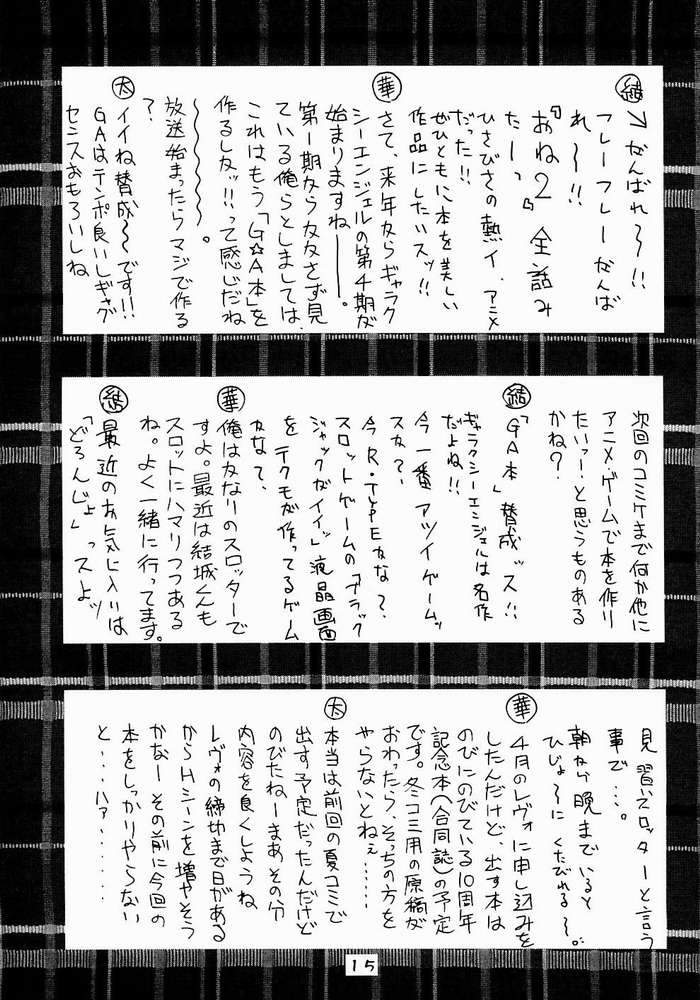 結
↘がんばれ〜!!
フレーフレーがんば
れ〜!!
『おね2』全話み
たーっ
ひさびさの熱イ、アニメ
だった!!
ぜひともに本を美しい
作品にしたいスッ!!
華
さて、来年からギャラク
シーエンジェルの第4期が
始まりますねー。
第一期からかかさず見
ている俺らとしましては、
これはもう「G☆A本」を
作るしかッ!!って感じだね
〜〜〜〜。
放送始まったらマジで作る
?
太
イイね賛成〜です!!
GAはテンポ良いしギャグ
センスおもろいしね
次回のコミケまで何か他に
アニメ・ゲームで本を作り
たいっー!と思うものある
かね?
結
「GA本」賛成ッス!!
ギャラクシーエンジェルは名作
だよね!!
今一番アツイゲームッ
スか?、
今R・TYPEかな?、
スロットゲームの「ブラック
ジャックがイイッ」液晶画面
をテクモが作ってるゲーム
かな?、
華
俺はかなりのスロッターで
すよ。最近は結城くんも
スロットにハマりつつある
ね。よく一緒に行ってます。
結
最近のお気に入りは
「どろんじょ」っスよッ
見習いスロッターと言う
事で…。
朝から晩までいると
ひじょ〜にくたびれる〜。
華
4月のレヴォに申し込みを
したんだけど、出す本は
のびにのびている10周年
記念本(合同誌)の予定
です。冬コミ用の原稿が
おわったら、そっちの方を
やらないとねぇ……
太
本当は前回の夏コミで
出す予定だったんだけど
のびたねーまあその分
内容を良くしようね
レヴォの締切まで日がある
からHシーンを増やそう
かなー その前に今回の
本をしっかりやらない
と…ハァ………
15